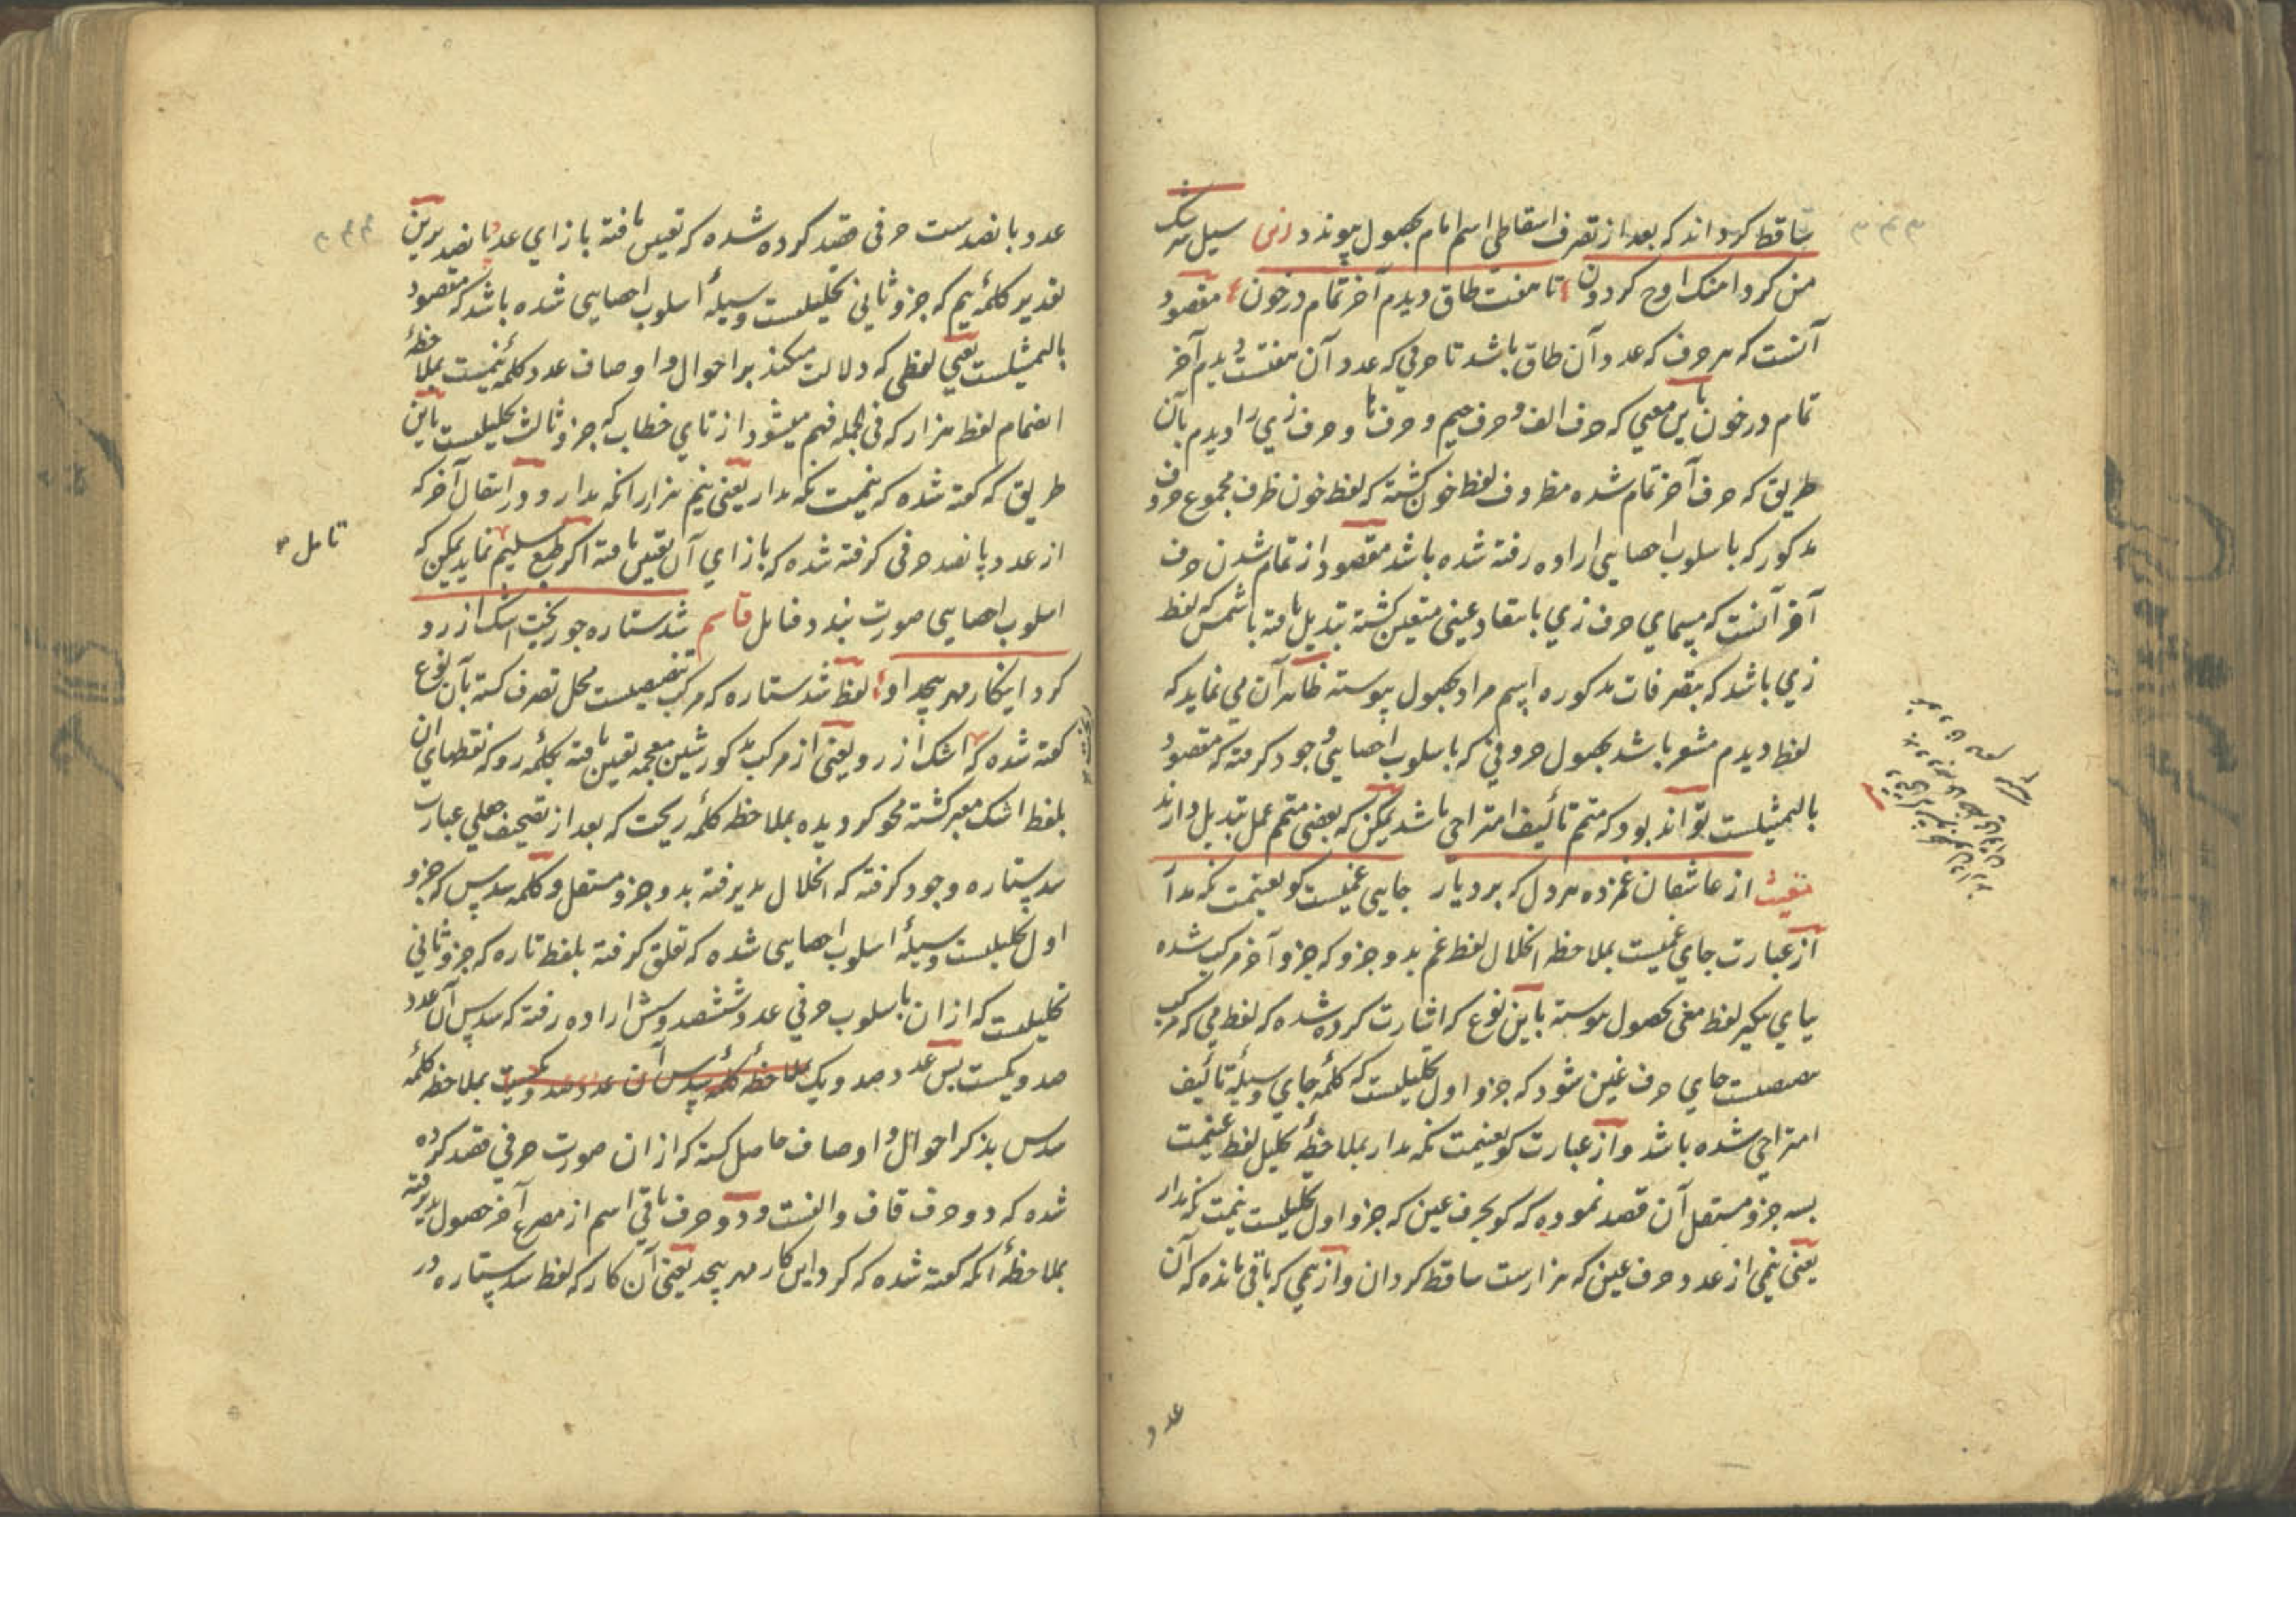 ساقط کرد اند که بعد از تصرف اسقاطی اسم امام بحصول پیوندد سیل سرشک
من کرد اوج کردون تا هفت طاق دیدم آخر تمام در خون مقصود
آنست که هر حرف که عدد آن طاق باشد تا حرفی که عدد آن هفتست دیدم آخر
تمام در خون باین معنی که حرف الف و حرف جیم و حرف ها و حرف زی را دیدم بآن
طریق که حرف آخر تمام شده مظروف لفظ خون کشته که لفظ خون ظرف مجموع حروف
مذکور که باسلوب احصایی اراده رفته شده باشد مقصود از تمام شدن حرف
آخر آنست که مسمای حرف زی بانتقاد عینی متعین کشته تبدیل یافته باشد که لفظ
زی باشد که بتصرفات مذکوره اسم مراد بحصول پیوسته ظاهر آن می نماید که
لفظ دیدم مشعر باشد بحصول حروفی که باسلوب احصایی وجود کرفته که مقصود
بالتمثیلست تواند بود که متمم تألیف امتزاجی باشد یمکن که بعضی متمم عمل تبدیل دارند
از عاشقان غمزده هر دل که برد یار جایی غمیست کو بغنیمت نکه دار
از عبارت جای غمیست بملاحظه انحلال لفظ غم بدو جزو که جزو آخر مرکب شده
بیای تنکیر لفظ معنی بحصول پیوسته باین نوع که اشارت کرده شده که لفظ می که مرکب
جای حرف غین شود که جزو اول تحلیلیست که کلمهٔ جای وسیلهٔ تألیف
امتزاجی شده باشد و از عبارت کو بغنیمت نکه دار بملاحظهٔ تحلیل لفظ غنیمت
بسه جزو مستقل آن قصد نموده که کو بحرف غین که جزو اول تحلیلیست نیمت نکه دار
یعنی نیمی از عدد حرف غین که هزارست ساقط کردان و از نیمی که باقی مانده که آن
عدد
عدد پانصدست حرفی قصد کرده شده که تعین یافته بازای عدد پانصد برین
تقدیر کلمهٔ نیم که جزو ثانی تحلیلیست وسیلهٔ اسلوب احصایی شده باشد که مقصود
بالتمثیلست یعنی لفظی که دلالت میکند بر احوال و اوصاف عدد کلمهٔ نیمست بملاحظهٔ
انضمام لفظ هزار که فی الجمله فهم میشود از تای خطاب که جزو ثالث تحلیلیست باین
طریق که کفته شده که نیمت نکه دار یعنی نیم هزار را نکه دار و در انتقال آخر که
از عدد پانصد حرفی کرفته شده که بازای آن تعین یافته اکر طبع سلیم نماید یمکن که
اسلوب احصایی صورت بندد فتامل قاسم شد ستاره چو ریخت اشک از رو
کرد اینکار مهر بیحد او لفظ شد ستاره که مرکب محل تصرف کشته بآن نوع
کفته شده که اشک از رو یعنی از مرکب مذکور شین معجمه تعین یافته بکلمه رو که نقطهای آن
بلفظ اشک معبر کشته محو کردیده بملاحظه کلمهٔ ریخت که بعد از تصحیف جعلی عبارت
سد ستاره وجود کرفته که انحلال پذیرفته بدو جزو مستقل و کلمه سدس که جزو
اول تحلیلیست وسیلهٔ اسلوب احصایی شده که تعلق کرفته بلفظ تاره که جزو ثانی
تحلیلیست که از ان باسلوب حرفی عدد ششصد و شش اراده رفته که سدس آن عدد
صد و یکست پس عدد صد و یک بملاحظه کلمهٔ سدس آن عدد صد و یکست بملاحظه کلمهٔ
سدس بذکر احوال و اوصاف حاصل کشته که از ان صورت حرفی قصد کرده
شده که دو حرف قاف و الفست و دو حرف باقی اسم از مصرع آخر حصول پذیرفته
بملاحظهٔ آنکه کفته شده که کرد این کار مهر بیحد یعنی آن کار که لفظ سد ستاره در
تامل